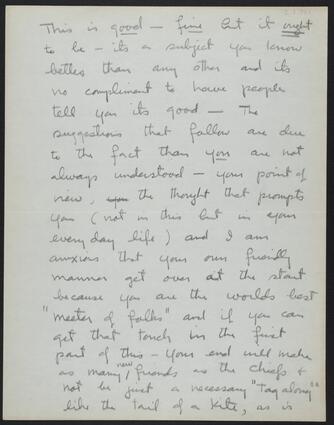 This is good — fine but it ought
to be — its a subject you know
better than any other and its
no compliment to have people
tell you its good — The
suggestions that follow are due
to the fact than you are not
always understood — your point of
view, you the thought that prompts
you (not in this but in your
everyday life) and I am
anxious that your own friendly
manner get over at the start
because you are the worlds best
"meeter of folks" and if you can
get that touch in the first
part of this — your end will make
as many new friends as the Chiefs &
not be just a necessary "tag along"
like the tail of a kite, as is